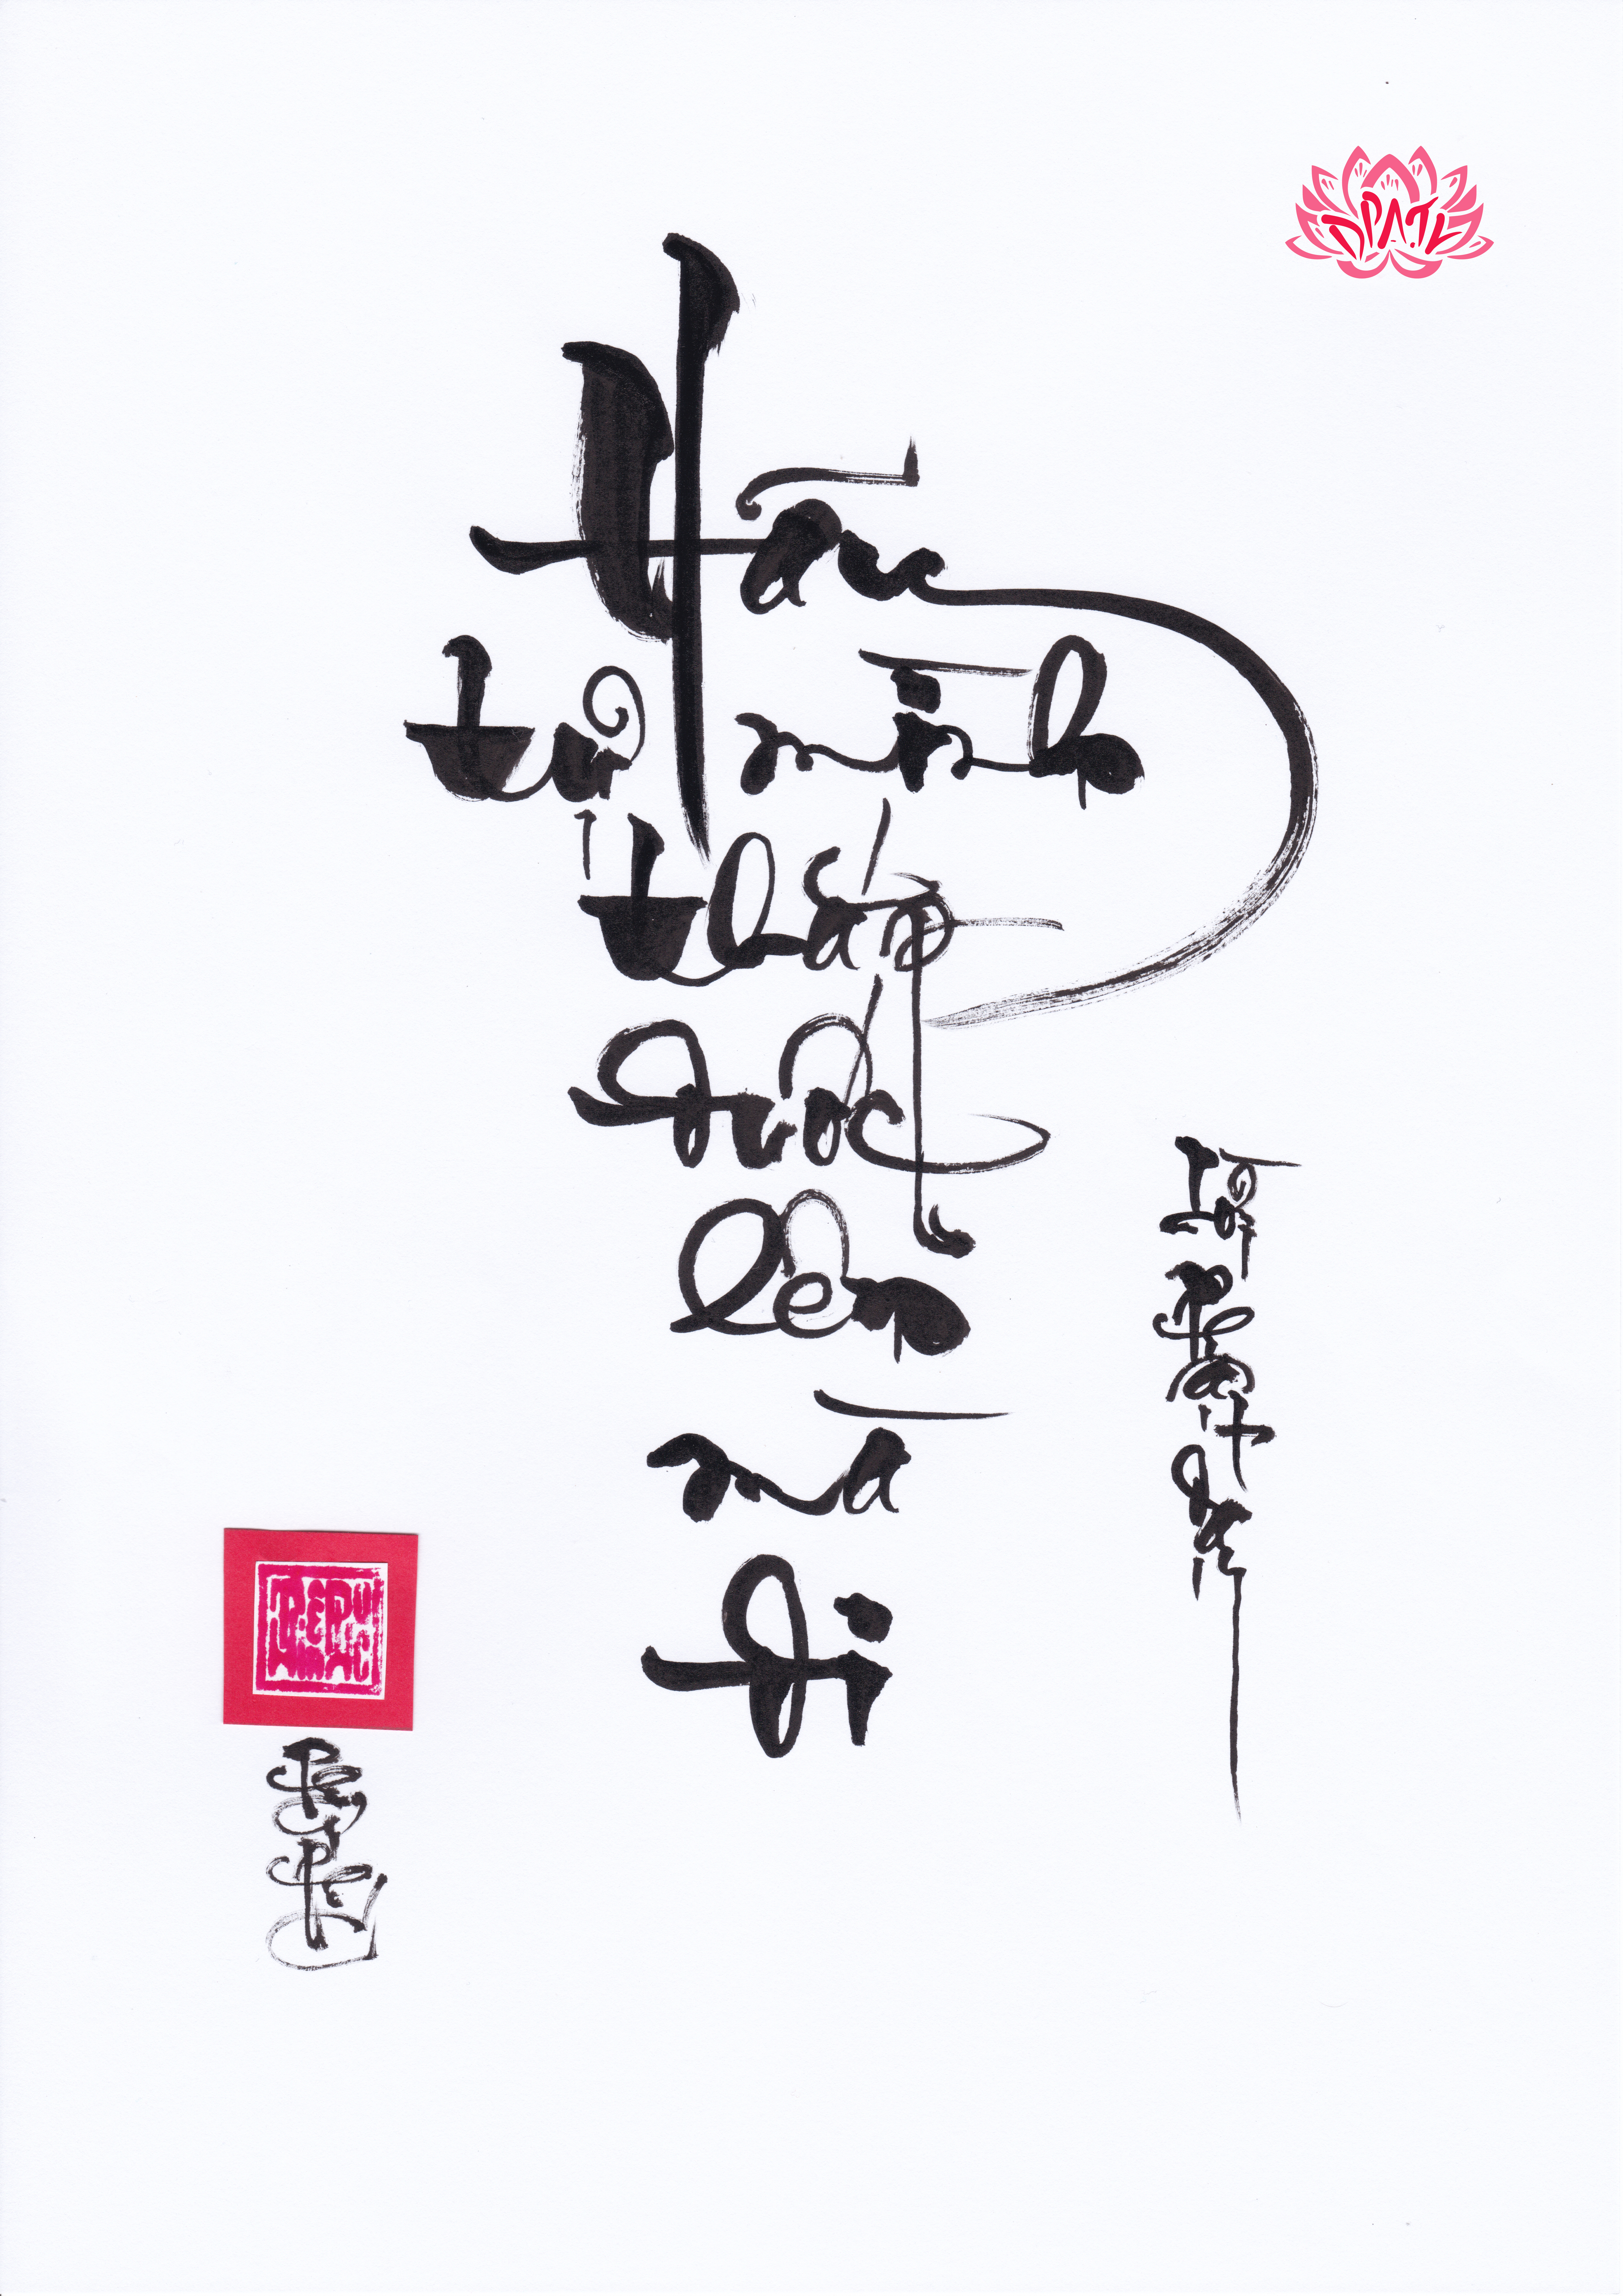 DPATL
Hãy
tự mình
thắp
đuốc
lên
mà
đi
Lời Phật dạy